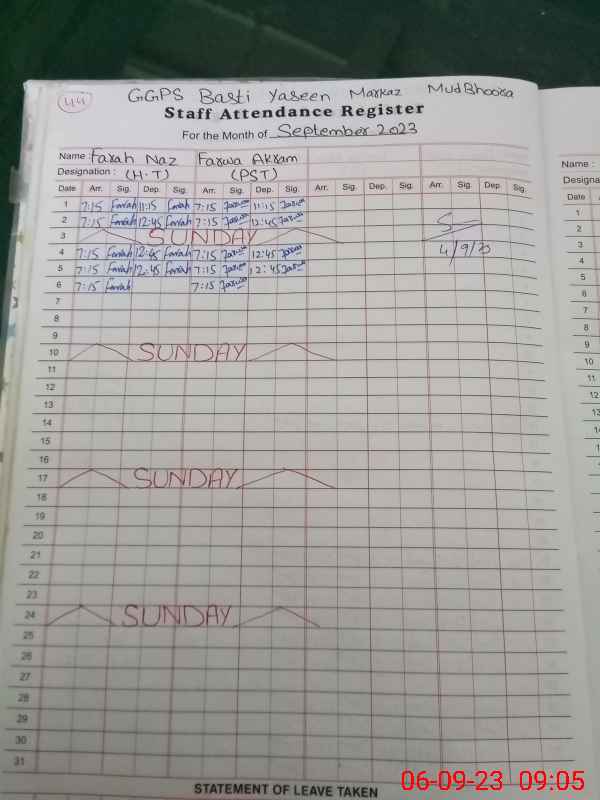 44
GGPS Basti Yaseen Markaz MudBhoora
Staff Attendance Register
For the Month of September 2023
Name Farah Naz Farwa Akram
Designation : (H.T) (PST)
Date Arr. Sig. Dep. Sig. Arr. Sig. Dep. Sig. Arr. Sig. Dep. Sig. Arr. Sig. Dep. Sig.
1 7:15 Farah 11:15 Farah 7:15 Farwa 11:15 Farwa
2 7:15 Farah 12:45 Farah 7:15 Farwa 12:45 Farwa
3 SUNDAY
4 7:15 Farah 12:45 Farah 7:15 Farwa 12:45 Farwa 4/9/23
5 7:15 Farah 12:45 Farah 7:15 Farwa 12:45 Farwa
6 7:15 Farah 7:15 Farwa
7
8
9
10 SUNDAY
11
12
13
14
15
16
17 SUNDAY
18
19
20
21
22
23
24 SUNDAY
25
26
27
28
29
30
31
STATEMENT OF LEAVE TAKEN
Name :
Designa
Date Arr
1
2
3
4
5
6
7
8
9
10
11
12
13
06-09-23 09:05